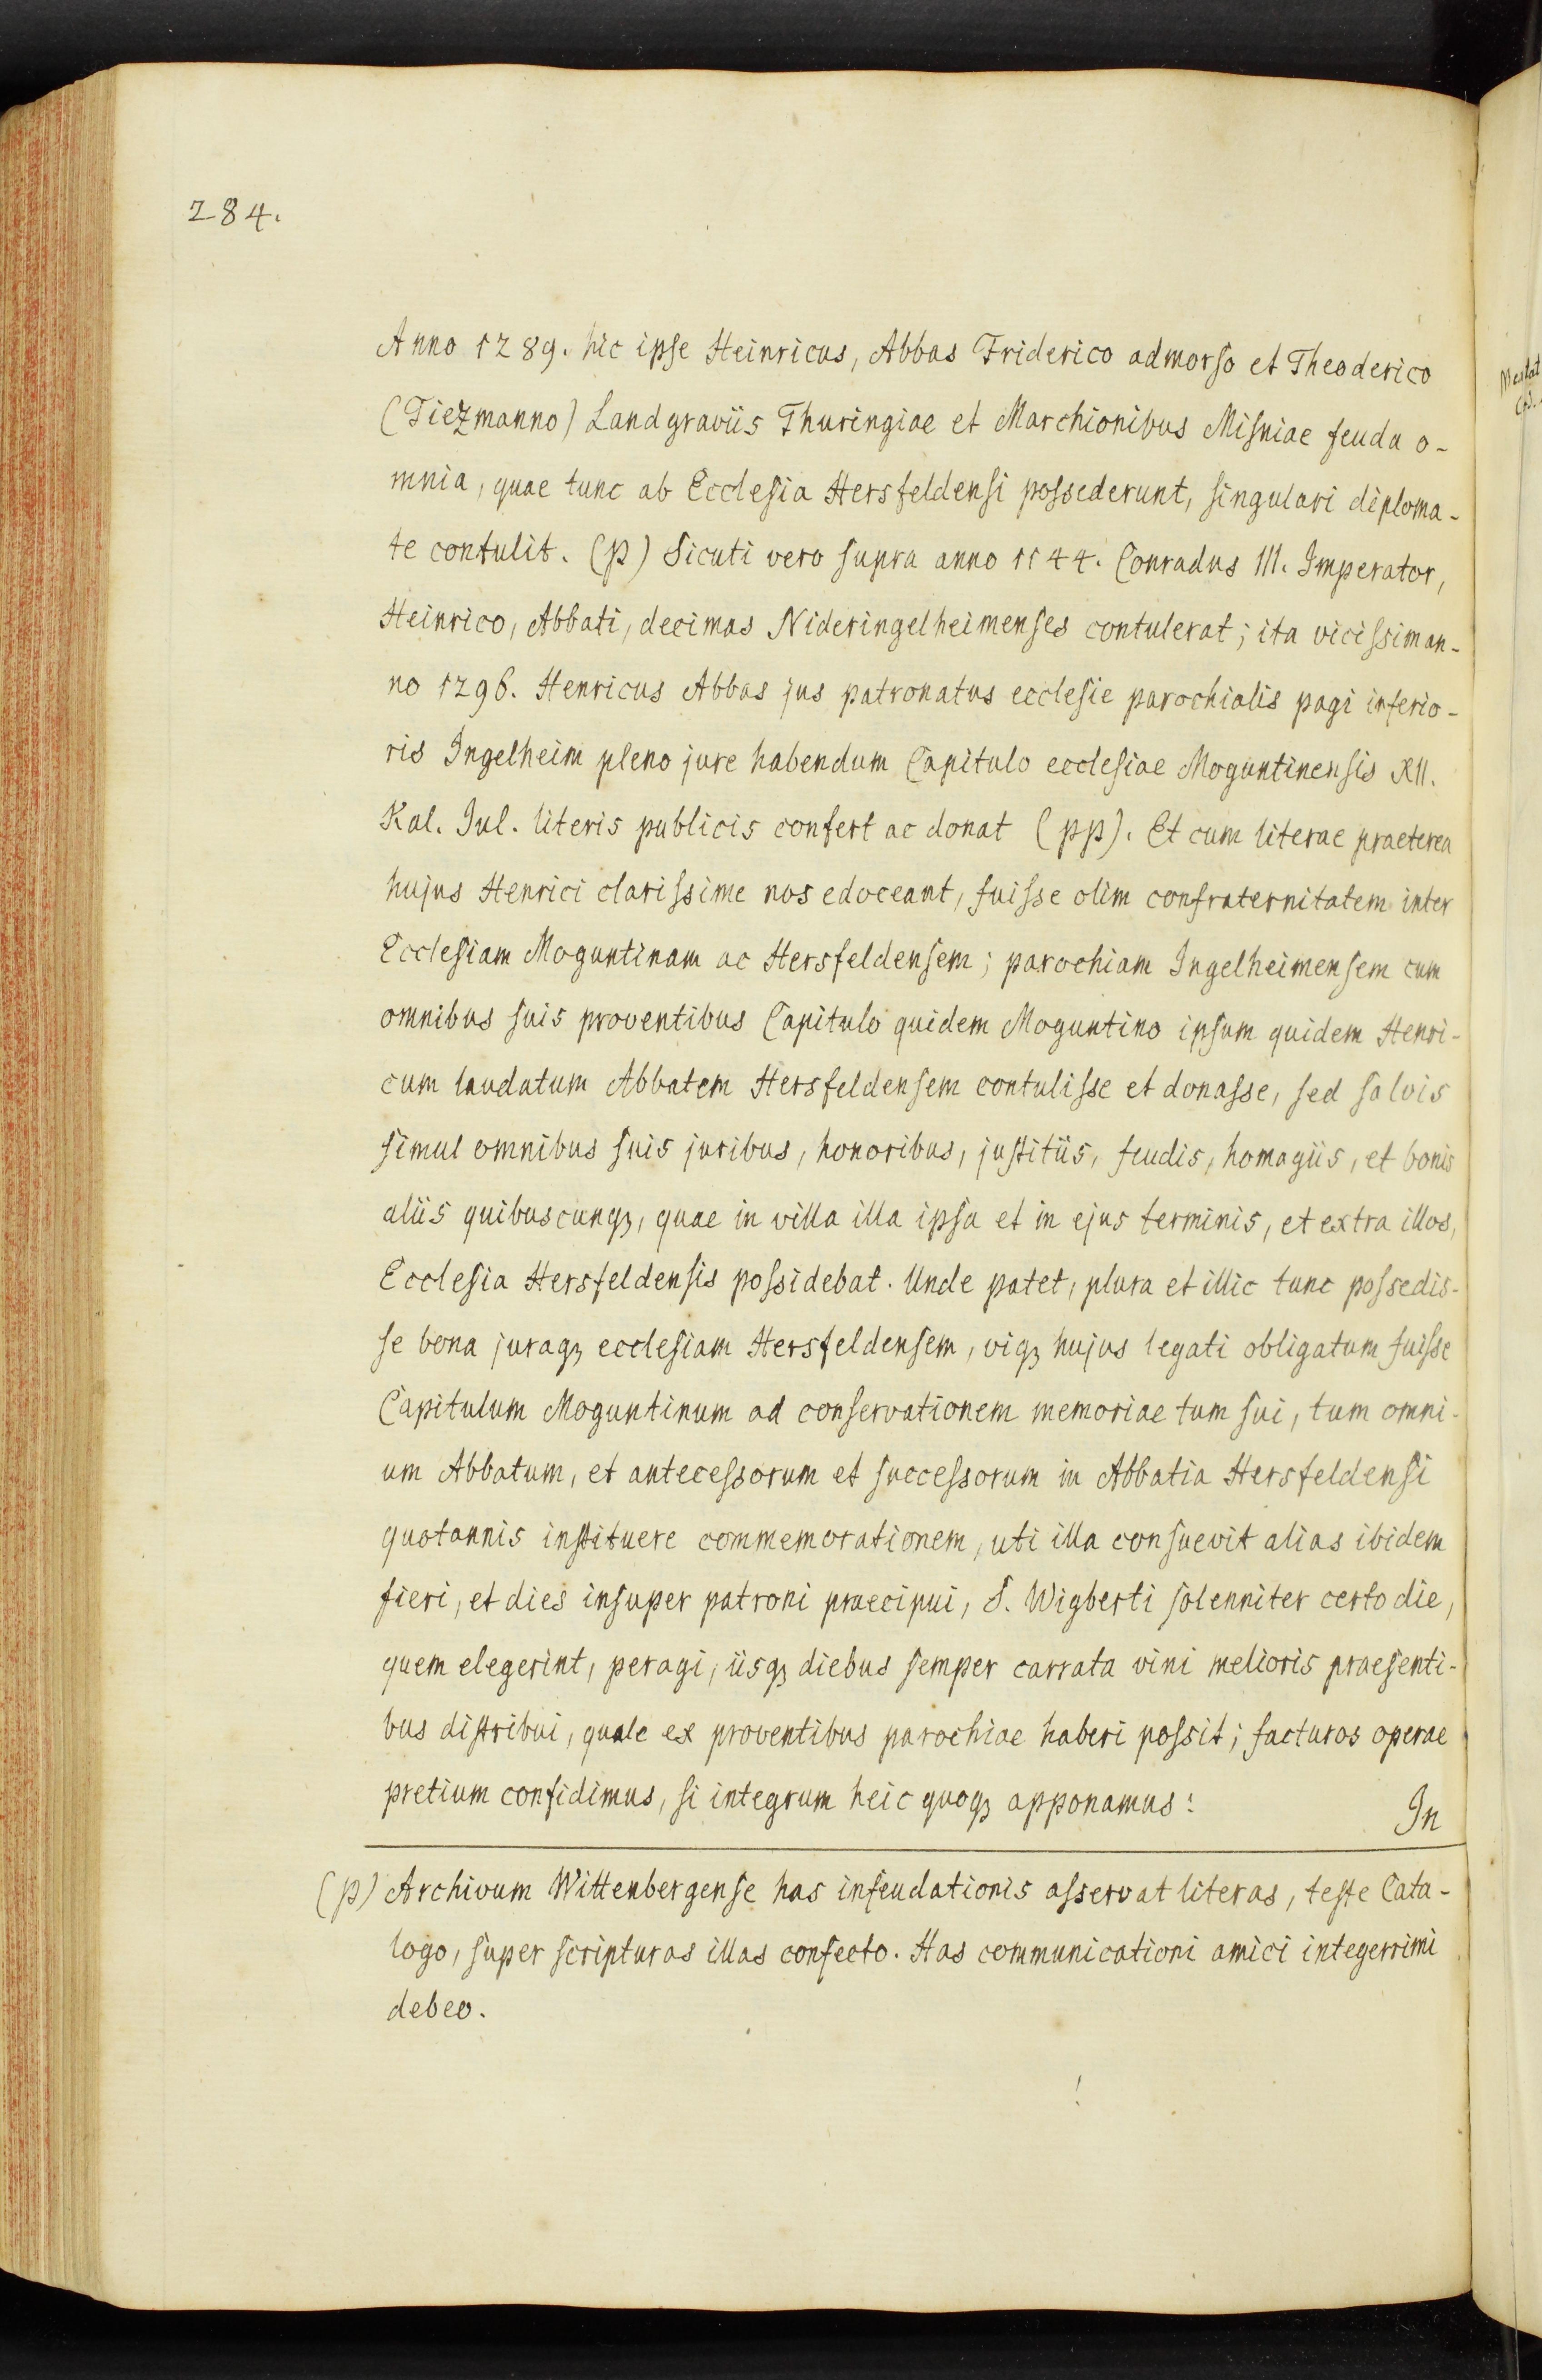 284.
Anno 1289. hic ipse Heinricus, Abbas Friderico admorso et Theoderico
(Tiezmanno) Landgraviis Thuringiae et Marchionibus Misniae feuda o-
mnia, quae tunc ab Ecclesia Hersfeldensi possederunt, singulari diploma-
te contulit. (p) Sicuti vero supra anno 1144. Conradus III. Imperator,
Heinrico, Abbati, decimas Nideringelheimenses contulerat; ita vicissim an-
no 1296. Henricus Abbas jus patronatus ecclesie parochialis pagi inferio-
ris Ingelheim pleno jure habendum Capitulo ecclesiae Moguntinensis XII.
Kal. Jul. literis publicis confert ac donat (pp). Et cum literae praeterea
hujus Henrici clarissime nos edoceant, fuisse olim confraternitatem inter
Ecclesiam Moguntinam ac Hersfeldensem; parochiam Ingelheimensem cum
omnibus suis proventibus Capitulo quidem Moguntino ipsum quidem Henri-
cum laudatum Abbatem Hersfeldensem contulisse et donasse, sed salvis
simul omnibus suis juribus, honoribus, justitiis, feudis, homagiis, et bonis
aliis quibuscunqꝫ, quae in villa illa ipsa et in ejus terminis, et extra illos,
Ecclesia Hersfeldensis possidebat. Unde patet, plura et illic tunc possedis-
se bona juraqꝫ ecclesiam Hersfeldensem, viqꝫ hujus legati obligatum fuisse
Capitulum Moguntinum ad conservationem memoriae tum sui, tum omni-
um Abbatum, et antecessorum et successorum in Abbatia Hersfeldensi
quotannis instituere commemorationem, uti illa consuevit alias ibidem
fieri, et dies insuper patroni praecipui, S. Wigberti solenniter certo die,
quem elegerint, peragi, iisqꝫ diebus semper carrata vini melioris praesenti-
bus distribui, quale ex proventibus parochiae haberi possit; facturos operae
pretium confidimus, si integrum heic quoqꝫ apponamus:
In
(p) Archivum Wittenbergense has infeudationis asservat literas, teste Cata-
logo, super scripturas illas confecto. Has communicationi amici integerrimi
debeo.